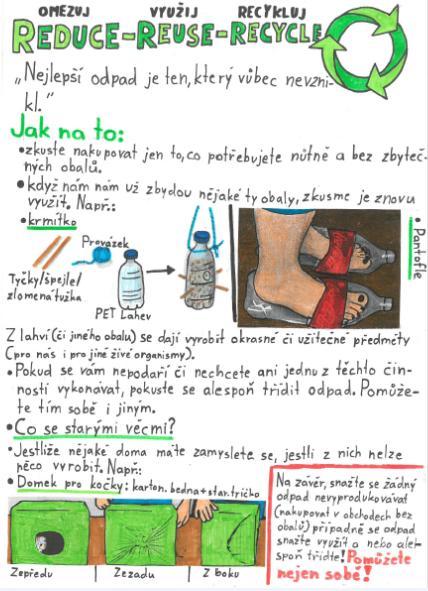 OMEZUJ VYUŽIJ RECYKLUJ
REDUCE-REUSE-RECYCLE
„Nejlepší odpad je ten, který vůbec nevzni-
kl.“
Jak na to:
• zkuste nakupovat jen to, co potřebujete nutně a bez zbyteč-
ných obalů.
• když nám nám už zbydou nějaké ty obaly, zkusme je znovu
využít. Např.:
• krmítko
Provázek
Tyčky/špejle/
zlomená tužka
PET Lahev
• Pantofle
Z lahví (či jiného obalu) se dají vyrobit okrasné či užitečné předměty
(pro nás i pro jiné živé organismy).
• Pokud se vám nepodaří či nechcete ani jednu z těchto čin-
ností vykonávat, pokuste se alespoň třídit odpad. Pomůže-
te tím sobě i jiným.
• Co se starými věcmi?
• Jestliže nějaké doma máte zamyslete se, jestli z nich nelze
něco vyrobit. Např:
• Domek pro kočky: karton. bedna+star. tričko
Zepředu Zezadu Z boku
Na závěr, snažte se žádný
odpad nevyprodukovávat
(nakupovat v obchodech bez
obalů) případně se odpad
snažte využít a nebo ale-
spoň třiďte! Pomůžete
nejen sobě!